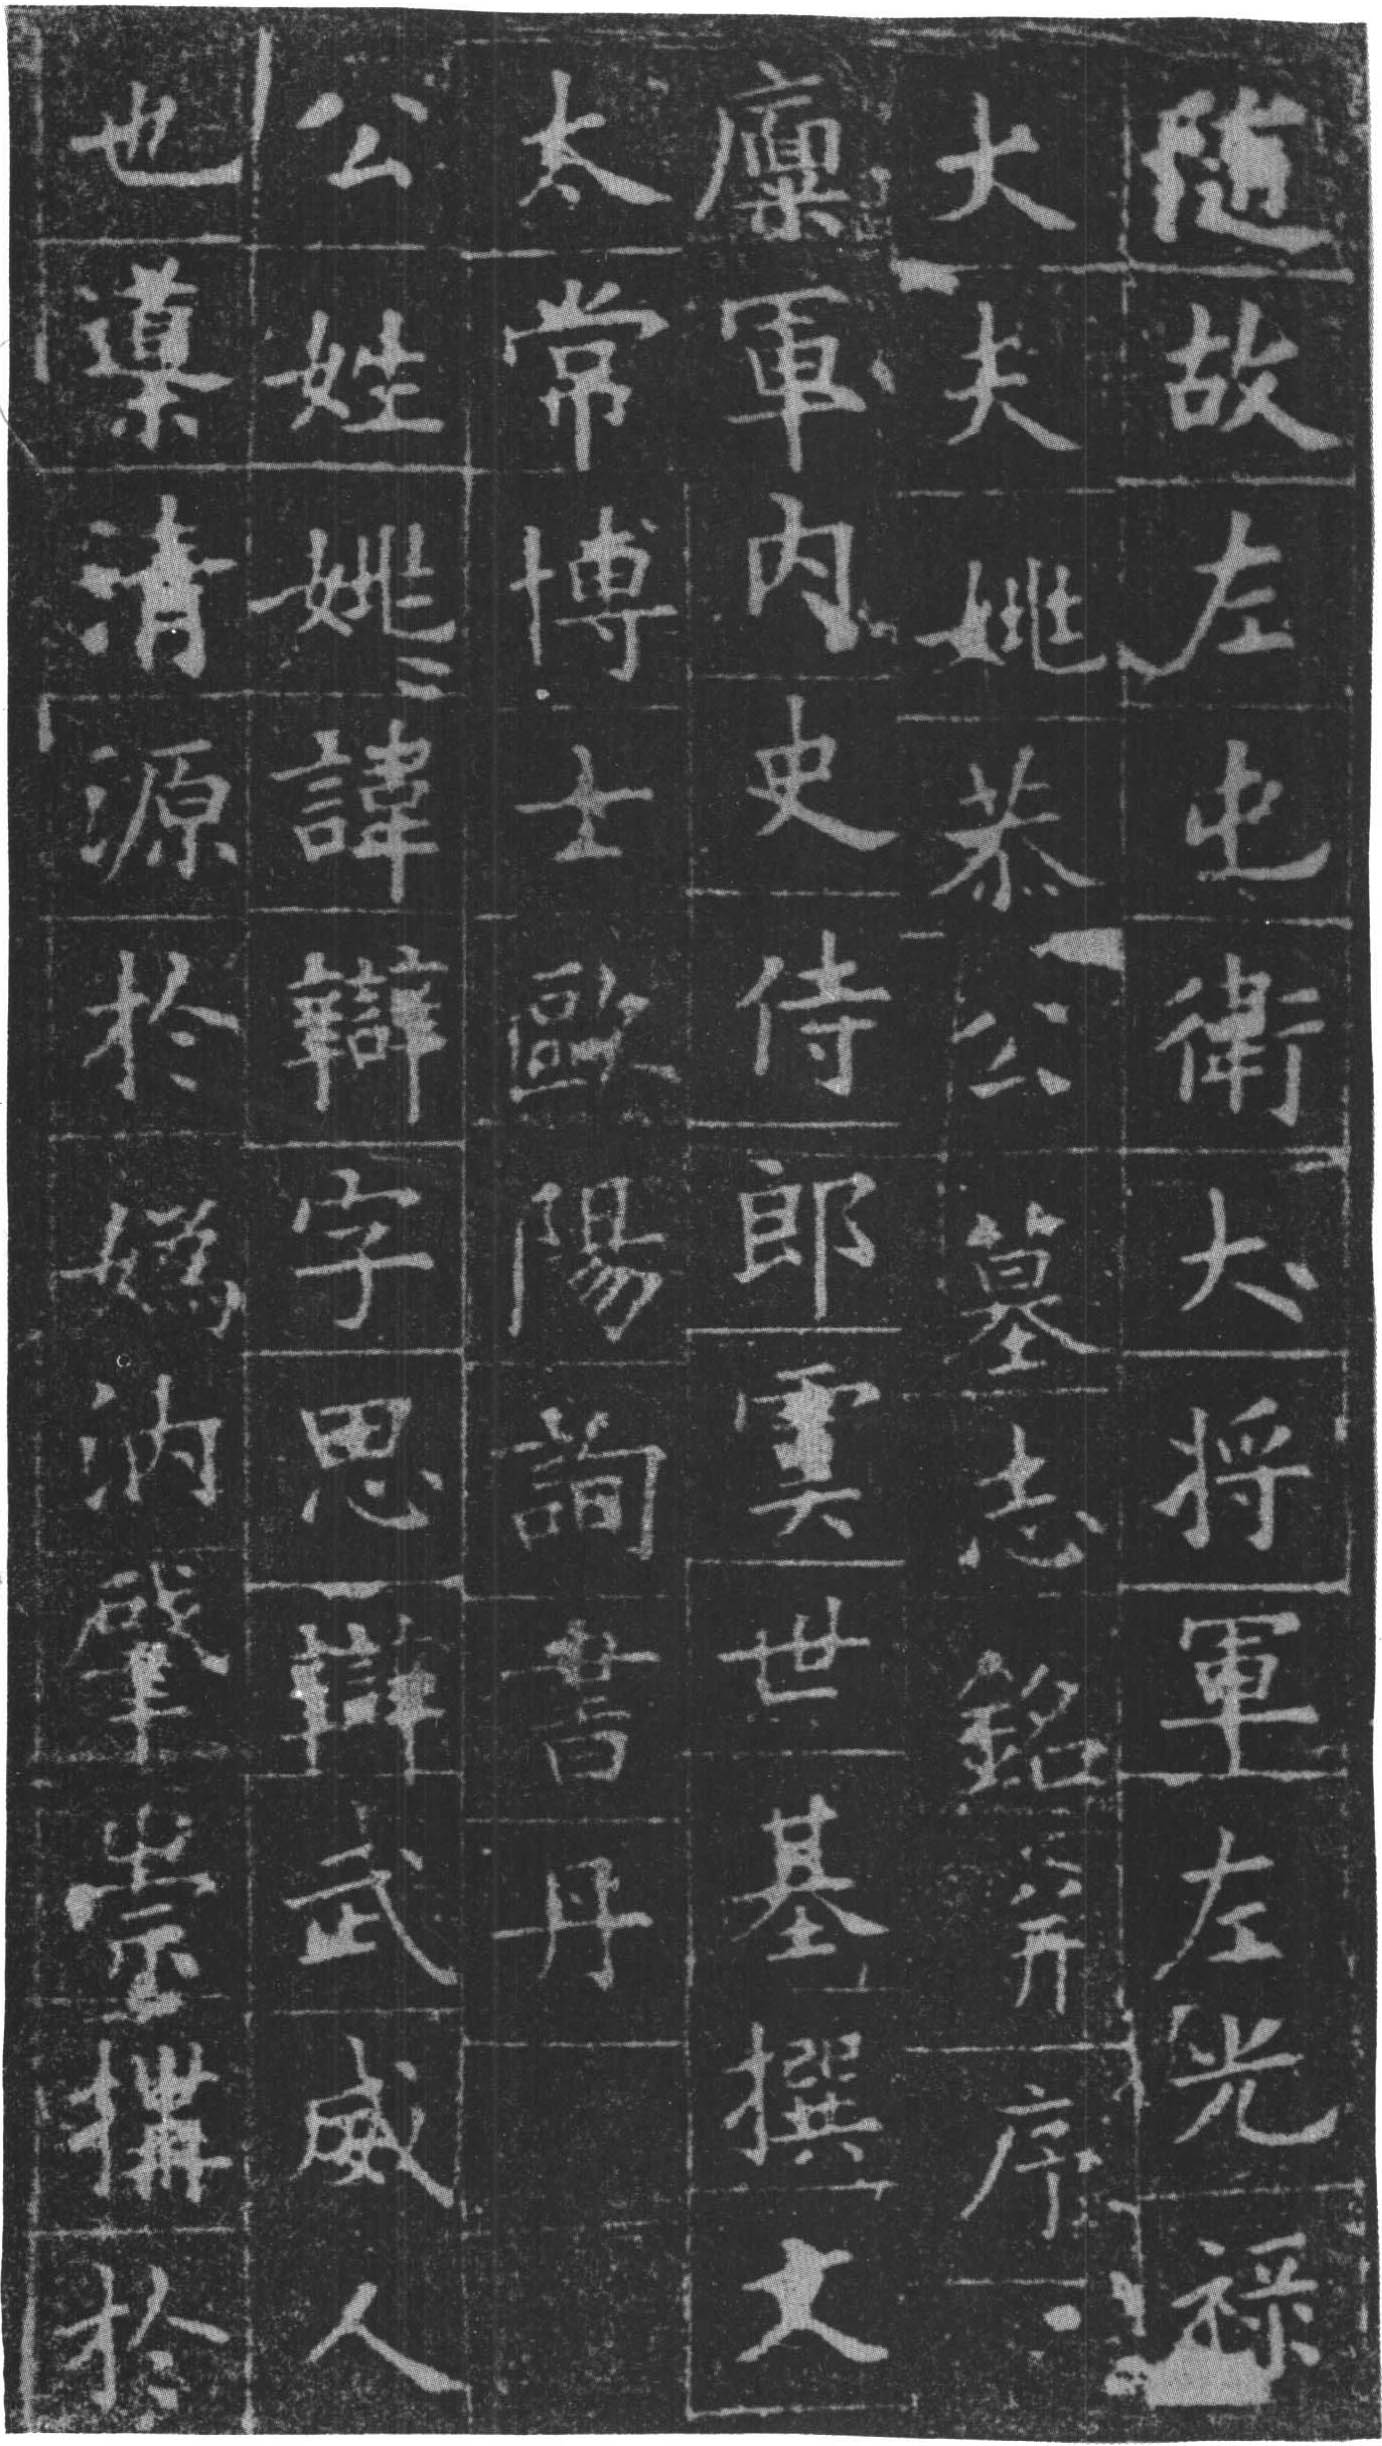 隨故左屯衛大将軍左光祿
大夫姚恭公墓志銘并序
稟軍内史侍郎虞世基撰文
太常博士歐陽詢書丹
公姓姚〻諱辯字思辯武威人
也導清源於嬀汭肇崇構於